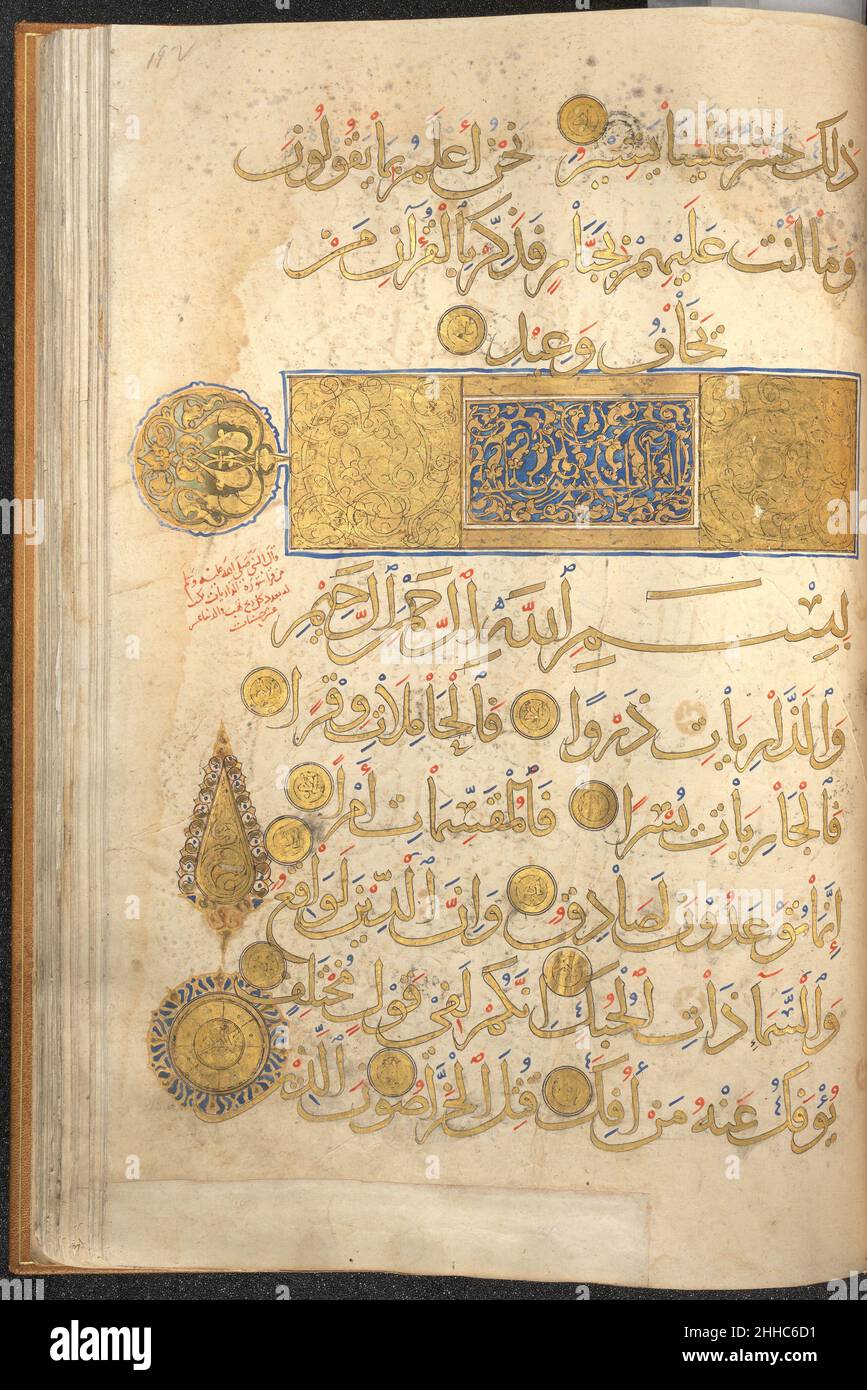 192
ذَلِكَ حَشْرٌ عَلَيْنَا يَسِيرٌ نَحْنُ أَعْلَمُ بِمَا يَقُولُونَ
وَمَا أَنْتَ عَلَيْهِمْ بِجَبَّارٍ فَذَكِّرْ بِالْقُرْآنِ مَنْ
يَخَافُ وَعِيدِ
قال النبي صلى الله عليه وسلم
من قرا سورة الذاريات
له بعدد كل ريح هبت
عشر حسنات
بِسْمِ اللَّهِ الرَّحْمَنِ الرَّحِيمِ
وَالذَّارِيَاتِ ذَرْوًا فَالْحَامِلَاتِ وِقْرًا
فَالْجَارِيَاتِ يُسْرًا فَالْمُقَسِّمَاتِ أَمْرًا
إِنَّمَا تُوعَدُونَ لَصَادِقٌ وَإِنَّ الدِّينَ لَوَاقِعٌ
وَالسَّمَآ ذَاتِ الْحُبُكِ إِنَّكُمْ لَفِي قَوْلٍ مُخْتَلِفٍ
يُؤْفَكُ عَنْهُ مَنْ أُفِكَ قُتِلَ الْخَرَّاصُونَ الَّذِينَ
alamy
Image ID: 2HHC6D1
www.alamy.com